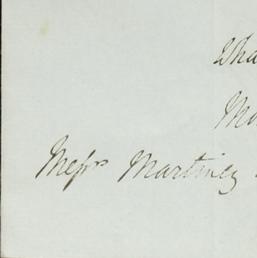 Wha
Mo
Messrs Martinez